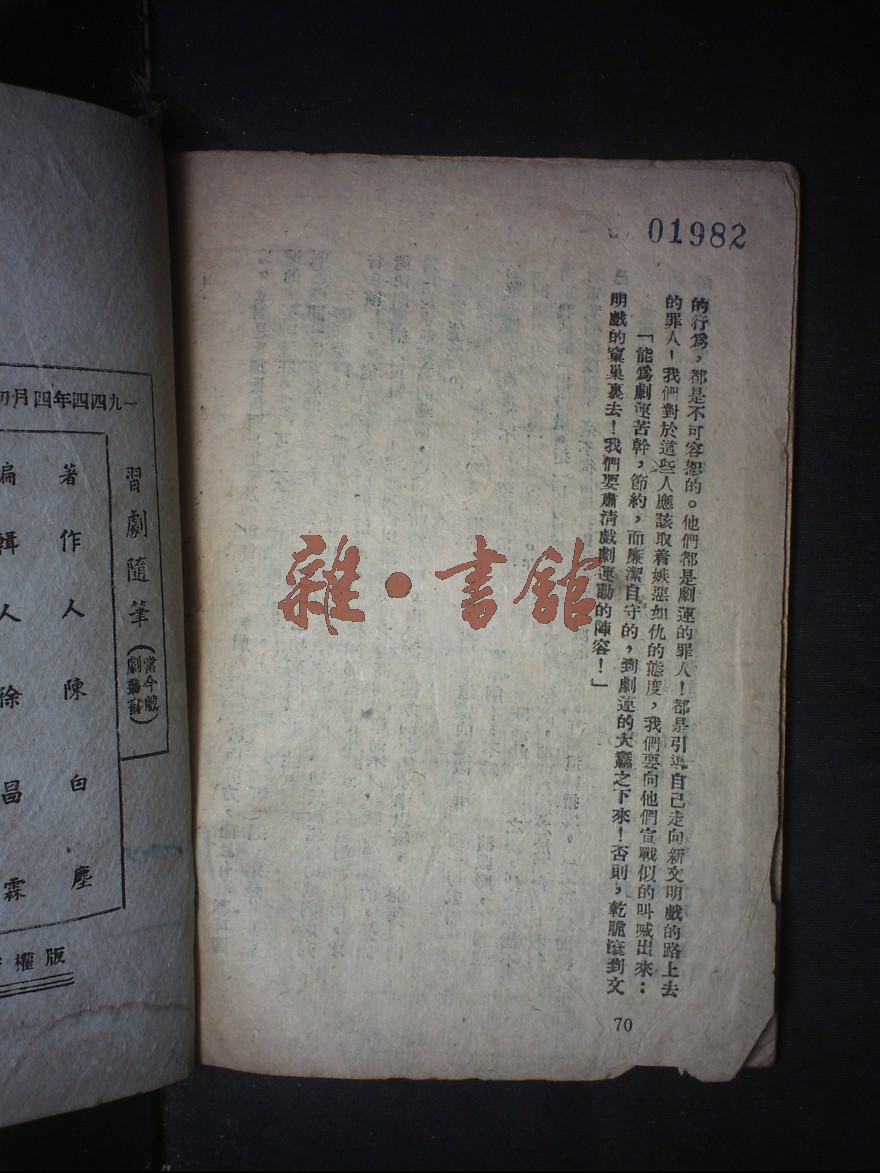 01982
的行爲，都是不可容恕的。他們都是劇運的罪人！都是引導自己走向新文明戲的路上去
的罪人！我們對於這些人應該取着嫉惡如仇的態度，我們要向他們宣戰似的叫喊出來：
「能爲劇運苦幹，節約，而廉潔自守的，到劇運的大纛之下來！否則，乾脆滾到文
明戲的窠巢裏去！我們要肅清戲劇運動的陣容！」
70
雜·書館
一九四四年四月初
習劇隨筆（當今戲劇叢書）
著作人陳白塵
編輯人徐昌霖
版權